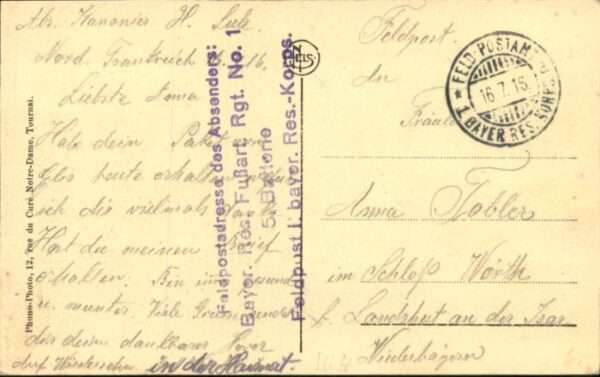 Abs. Kanonier H.
Nord. Frankreich 16.
Liebste Anna
Hab dein Paket vom
heute erhalten
ich dir vielmals Dank
Hast du meinen Brief
erhalten. Bin gesund
u. munter. Viele Grüsse sendet
dir dein dankbarer
Auf Wiedersehn in der Heimat.
Phono-Photo, 12, rue du Curé Notre-Dame, Tournai.
Feldpostadresse des Absenders:
Bayer. Res. Fußart. Rgt. No. 1
5. Batterie
Feldpost I. bayer. Res.-Korps.
Feldpost.
FELD-POSTAMT
16.7.15.
1. BAYER. RES. KORPS
An
Fräulein
Anna Tobler
im Schloß Wörth
b. Landshut an der Isar
Niederbayern